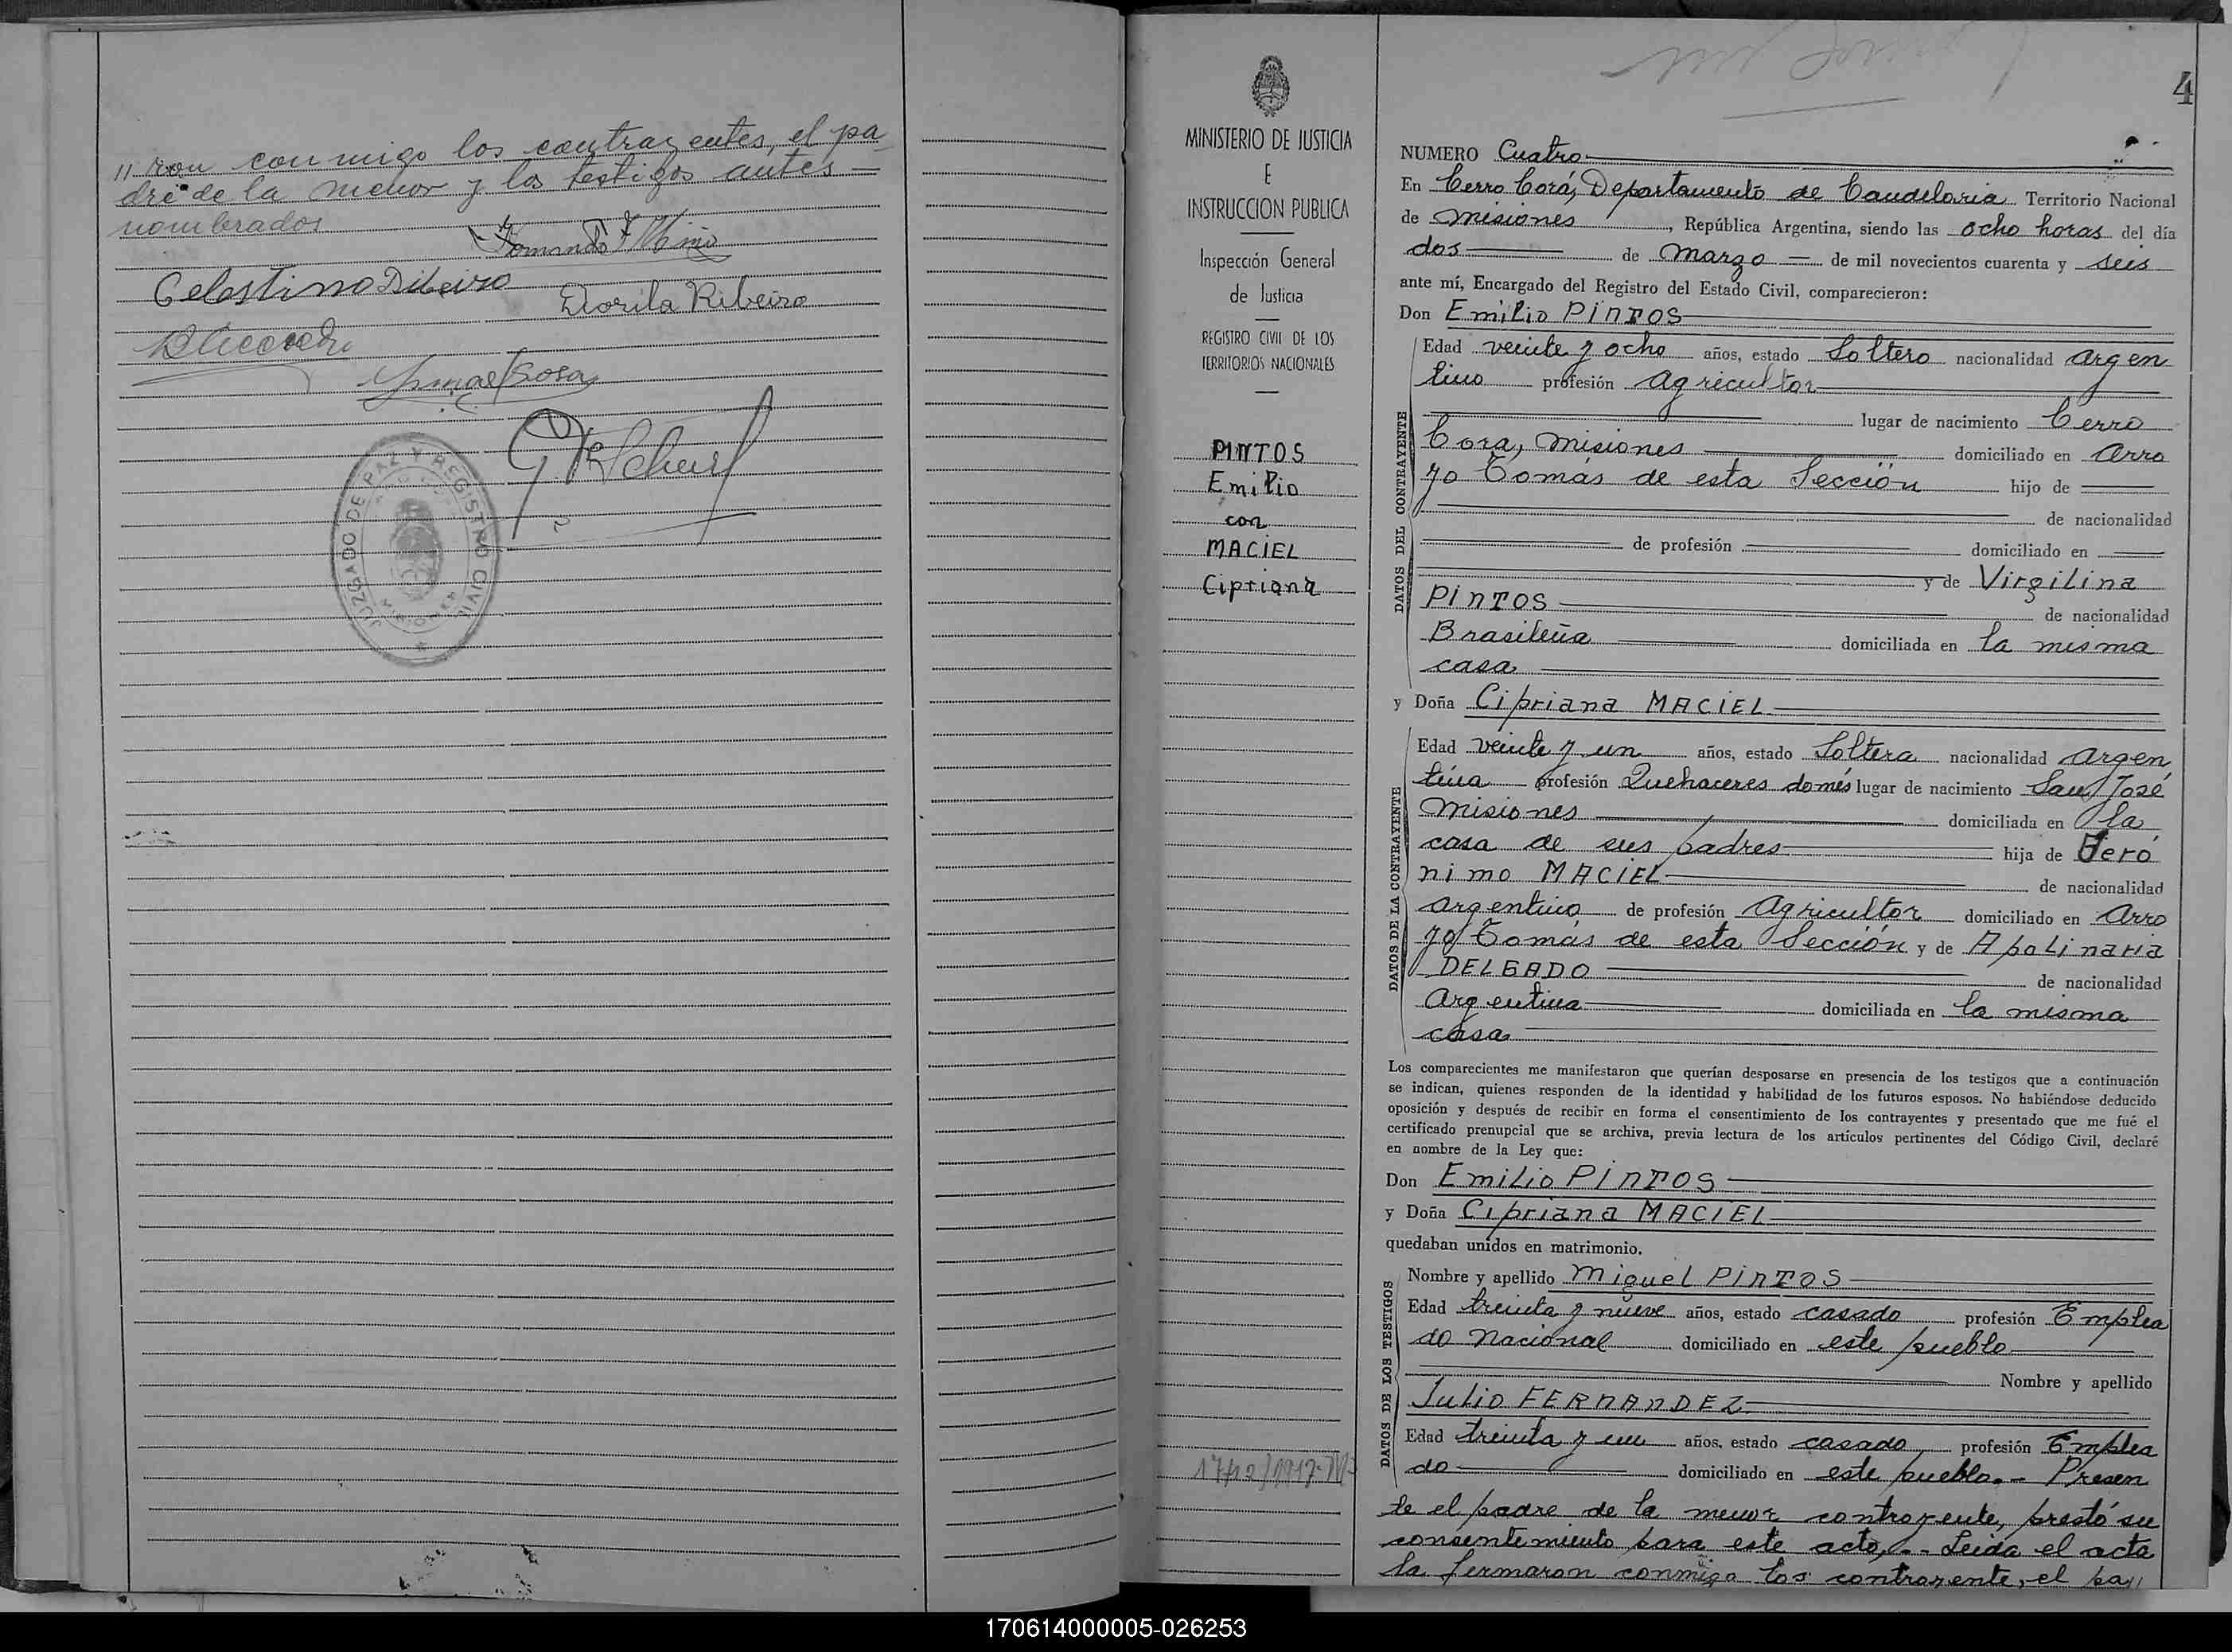 // ron conmigo los contrayentes, el pa
dre de la menor y los testigos antes —
nombrados
Celestino Ribeiro
Dorila Ribeiro
Ismael Sosa
JUZGADO DE PAZ Y REGISTRO CIVIL
MINISTERIO DE JUSTICIA
E
INSTRUCCION PUBLICA
Inspección General
de Justicia
REGISTRO CIVIL DE LOS
TERRITORIOS NACIONALES
PINTOS
Emilio
con
MACIEL
Cipriana
4
NUMERO Cuatro
En Cerro Corá, Departamento de Candelaria Territorio Nacional
de Misiones, República Argentina, siendo las ocho horas del día
dos de Marzo — de mil novecientos cuarenta y seis
ante mí, Encargado del Registro del Estado Civil, comparecieron:
Don Emilio PINTOS
DATOS DEL CONTRAYENTE
Edad veinte y ocho años, estado Soltero nacionalidad argen
tino profesión agricultor
lugar de nacimiento Cerro
Cora, Misiones domiciliado en Arro
yo Tomás de esta Sección hijo de
de nacionalidad
de profesión domiciliado en
y de Virgilina
PINTOS de nacionalidad
Brasileña domiciliada en la misma
casa
y Doña Cipriana MACIEL
DATOS DE LA CONTRAYENTE
Edad veinte y un años, estado Soltera nacionalidad argen
tina profesión Quehaceres domés lugar de nacimiento San José
Misiones domiciliada en la
casa de sus padres hija de Geró
nimo MACIEL de nacionalidad
argentino de profesión Agricultor domiciliado en Arro
yo Tomás de esta Sección y de Apolinaria
DELGADO de nacionalidad
Argentina domiciliada en la misma
casa
Los comparecientes me manifestaron que querían desposarse en presencia de los testigos que a continuación
se indican, quienes responden de la identidad y habilidad de los futuros esposos. No habiéndose deducido
oposición y después de recibir en forma el consentimiento de los contrayentes y presentado que me fué el
certificado prenupcial que se archiva, previa lectura de los artículos pertinentes del Código Civil, declaré
en nombre de la Ley que:
Don Emilio PINTOS
y Doña Cipriana MACIEL
quedaban unidos en matrimonio.
DATOS DE LOS TESTIGOS
Nombre y apellido Miguel PINTOS
Edad treinta y nueve años, estado casado profesión Emplea
do Nacional domiciliado en este pueblo
Nombre y apellido
Julio FERNANDEZ
Edad treinta y un años, estado casado profesión Emplea
do domiciliado en este pueblo.- Presen
te el padre de la menor contrayente, prestó su
consentimiento para este acto,-- Leida el acta
la firmaron conmigo los contrayente, el pa//
170614000005-026253